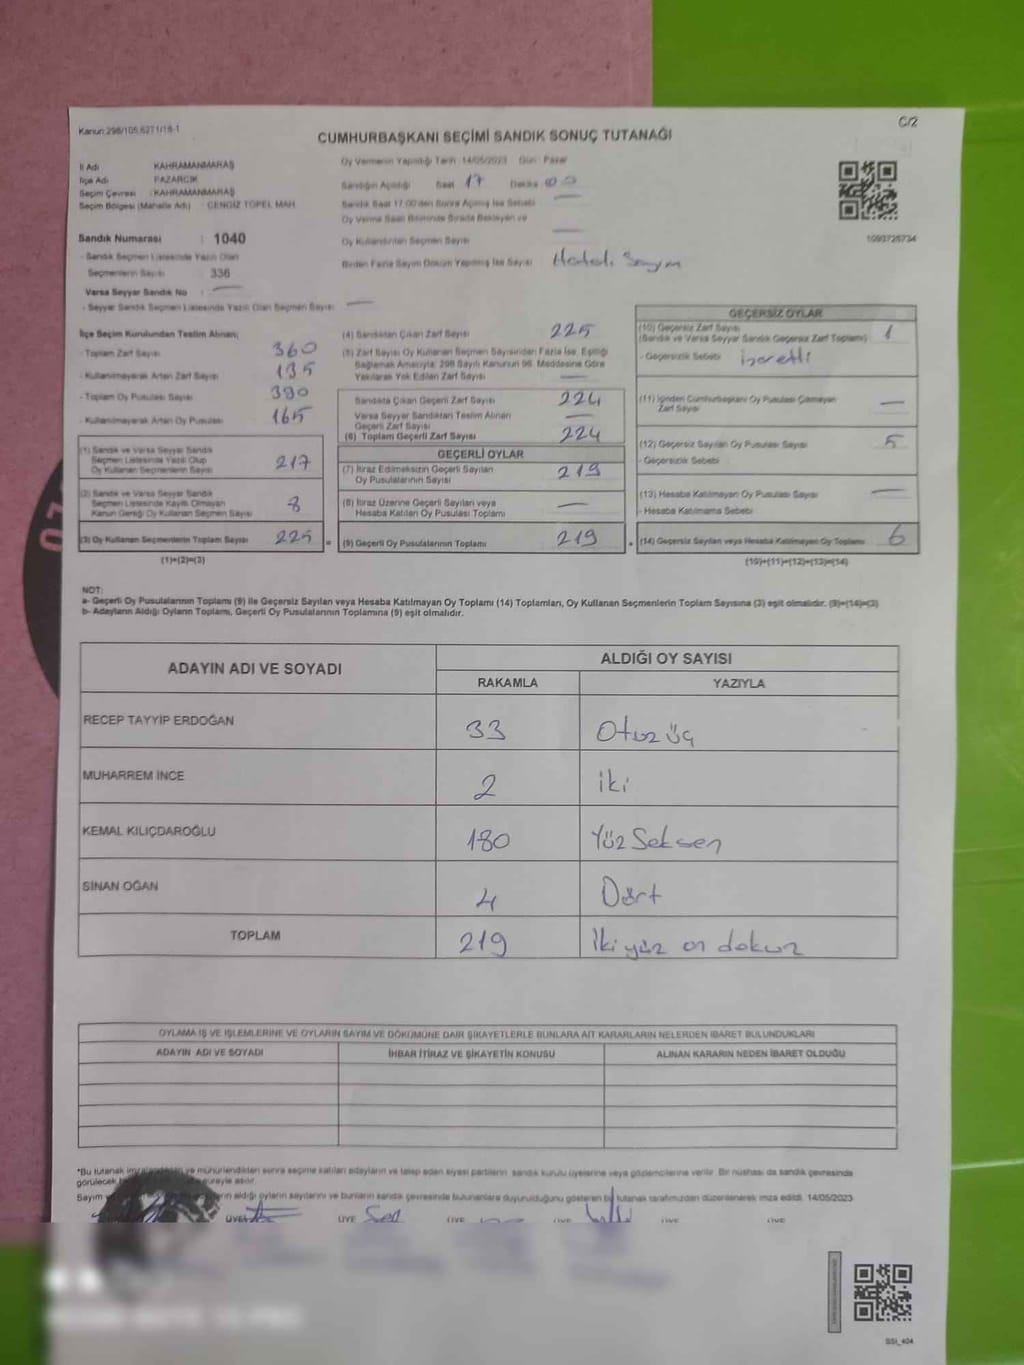 Kanun:298/105,6271/18-1
C/2
CUMHURBAŞKANI SEÇİMİ SANDIK SONUÇ TUTANAĞI
İl Adı KAHRAMANMARAŞ
İlçe Adı PAZARCIK
Seçim Çevresi : KAHRAMANMARAŞ
Seçim Bölgesi (Mahalle Adı) : CENGİZ TOPEL MAH.
Sandık Numarası : 1040
- Sandık Seçmen Listesinde Yazılı Olan
Seçmenlerin Sayısı 336
Varsa Seyyar Sandık No : —
- Seyyar Sandık Seçmen Listesinde Yazılı Olan Seçmen Sayısı —
Oy Vermenin Yapıldığı Tarih : 14/05/2023 Gün : Pazar
Sandığın Açıldığı Saat 17 Dakika 00
Sandık Saat 17:00'den Sonra Açılmış İse Sebebi —
Oy Verme Saati Bitiminde Sırada Bekleyen ve
Oy Kullandırılan Seçmen Sayısı —
Birden Fazla Sayım Döküm Yapılmış İse Sayısı Hatalı Sayım
1093726734
İlçe Seçim Kurulundan Teslim Alınan;
- Toplam Zarf Sayısı 360
- Kullanılmayarak Artan Zarf Sayısı 135
- Toplam Oy Pusulası Sayısı 390
- Kullanılmayarak Artan Oy Pusulası 165
(1) Sandık ve Varsa Seyyar Sandık
Seçmen Listesinde Yazılı Olup
Oy Kullanan Seçmenlerin Sayısı 217
(2) Sandık ve Varsa Seyyar Sandık
Seçmen Listesinde Kayıtlı Olmayan
Kanun Gereği Oy Kullanan Seçmen Sayısı 8
(3) Oy Kullanan Seçmenlerin Toplam Sayısı 225
(1)+(2)=(3)
(4) Sandıktan Çıkan Zarf Sayısı 225
(5) Zarf Sayısı Oy Kullanan Seçmen Sayısından Fazla İse, Eşitliği
Sağlamak Amacıyla, 298 Sayılı Kanunun 98. Maddesine Göre
Yakılarak Yok Edilen Zarf Sayısı —
Sandıkta Çıkan Geçerli Zarf Sayısı 224
Varsa Seyyar Sandıktan Teslim Alınan
Geçerli Zarf Sayısı —
(6) Toplam Geçerli Zarf Sayısı 224
GEÇERLİ OYLAR
(7) İtiraz Edilmeksizin Geçerli Sayılan
Oy Pusulalarının Sayısı 219
(8) İtiraz Üzerine Geçerli Sayılan veya
Hesaba Katılan Oy Pusulası Toplamı —
(9) Geçerli Oy Pusulalarının Toplamı 219
GEÇERSİZ OYLAR
(10) Geçersiz Zarf Sayısı
(Sandık ve Varsa Seyyar Sandık Geçersiz Zarf Toplamı) 1
- Geçersizlik Sebebi işaretli
(11) İçinden Cumhurbaşkanı Oy Pusulası Çıkmayan
Zarf Sayısı —
(12) Geçersiz Sayılan Oy Pusulası Sayısı 5
- Geçersizlik Sebebi
(13) Hesaba Katılmayan Oy Pusulası Sayısı —
- Hesaba Katılmama Sebebi
(14) Geçersiz Sayılan veya Hesaba Katılmayan Oy Toplamı 6
(10)+(11)+(12)+(13)=(14)
NOT:
a- Geçerli Oy Pusulalarının Toplamı (9) ile Geçersiz Sayılan veya Hesaba Katılmayan Oy Toplamı (14) Toplamları, Oy Kullanan Seçmenlerin Toplam Sayısına (3) eşit olmalıdır. (9)+(14)=(3)
b- Adayların Aldığı Oyların Toplamı, Geçerli Oy Pusulalarının Toplamına (9) eşit olmalıdır.
ADAYIN ADI VE SOYADI
ALDIĞI OY SAYISI
RAKAMLA YAZIYLA
RECEP TAYYİP ERDOĞAN 33 Otuz üç
MUHARREM İNCE 2 iki
KEMAL KILIÇDAROĞLU 180 Yüz Seksen
SİNAN OĞAN 4 Dört
TOPLAM 219 İki yüz on dokuz
OYLAMA İŞ VE İŞLEMLERİNE VE OYLARIN SAYIM VE DÖKÜMÜNE DAİR ŞİKAYETLERLE BUNLARA AİT KARARLARIN NELERDEN İBARET BULUNDUKLARI
ADAYIN ADI VE SOYADI İHBAR İTİRAZ VE ŞİKAYETİN KONUSU ALINAN KARARIN NEDEN İBARET OLDUĞU
*Bu tutanak ve mühürlendikten sonra seçime katılan adayların ve talep eden siyasi partilerin sandık kurulu üyelerine veya gözlemcilerine verilir. Bir nüshası da sandık çevresinde
görülecek süreyle asılır.
Sayım aldığı oyların sayılarını ve bunların sandık çevresinde bulunanlara duyurulduğunu gösteren bu tutanak tarafımızdan düzenlenerek imza edildi. 14/05/2023
ÜYE ÜYE ÜYE ÜYE ÜYE ÜYE
SSİ_404